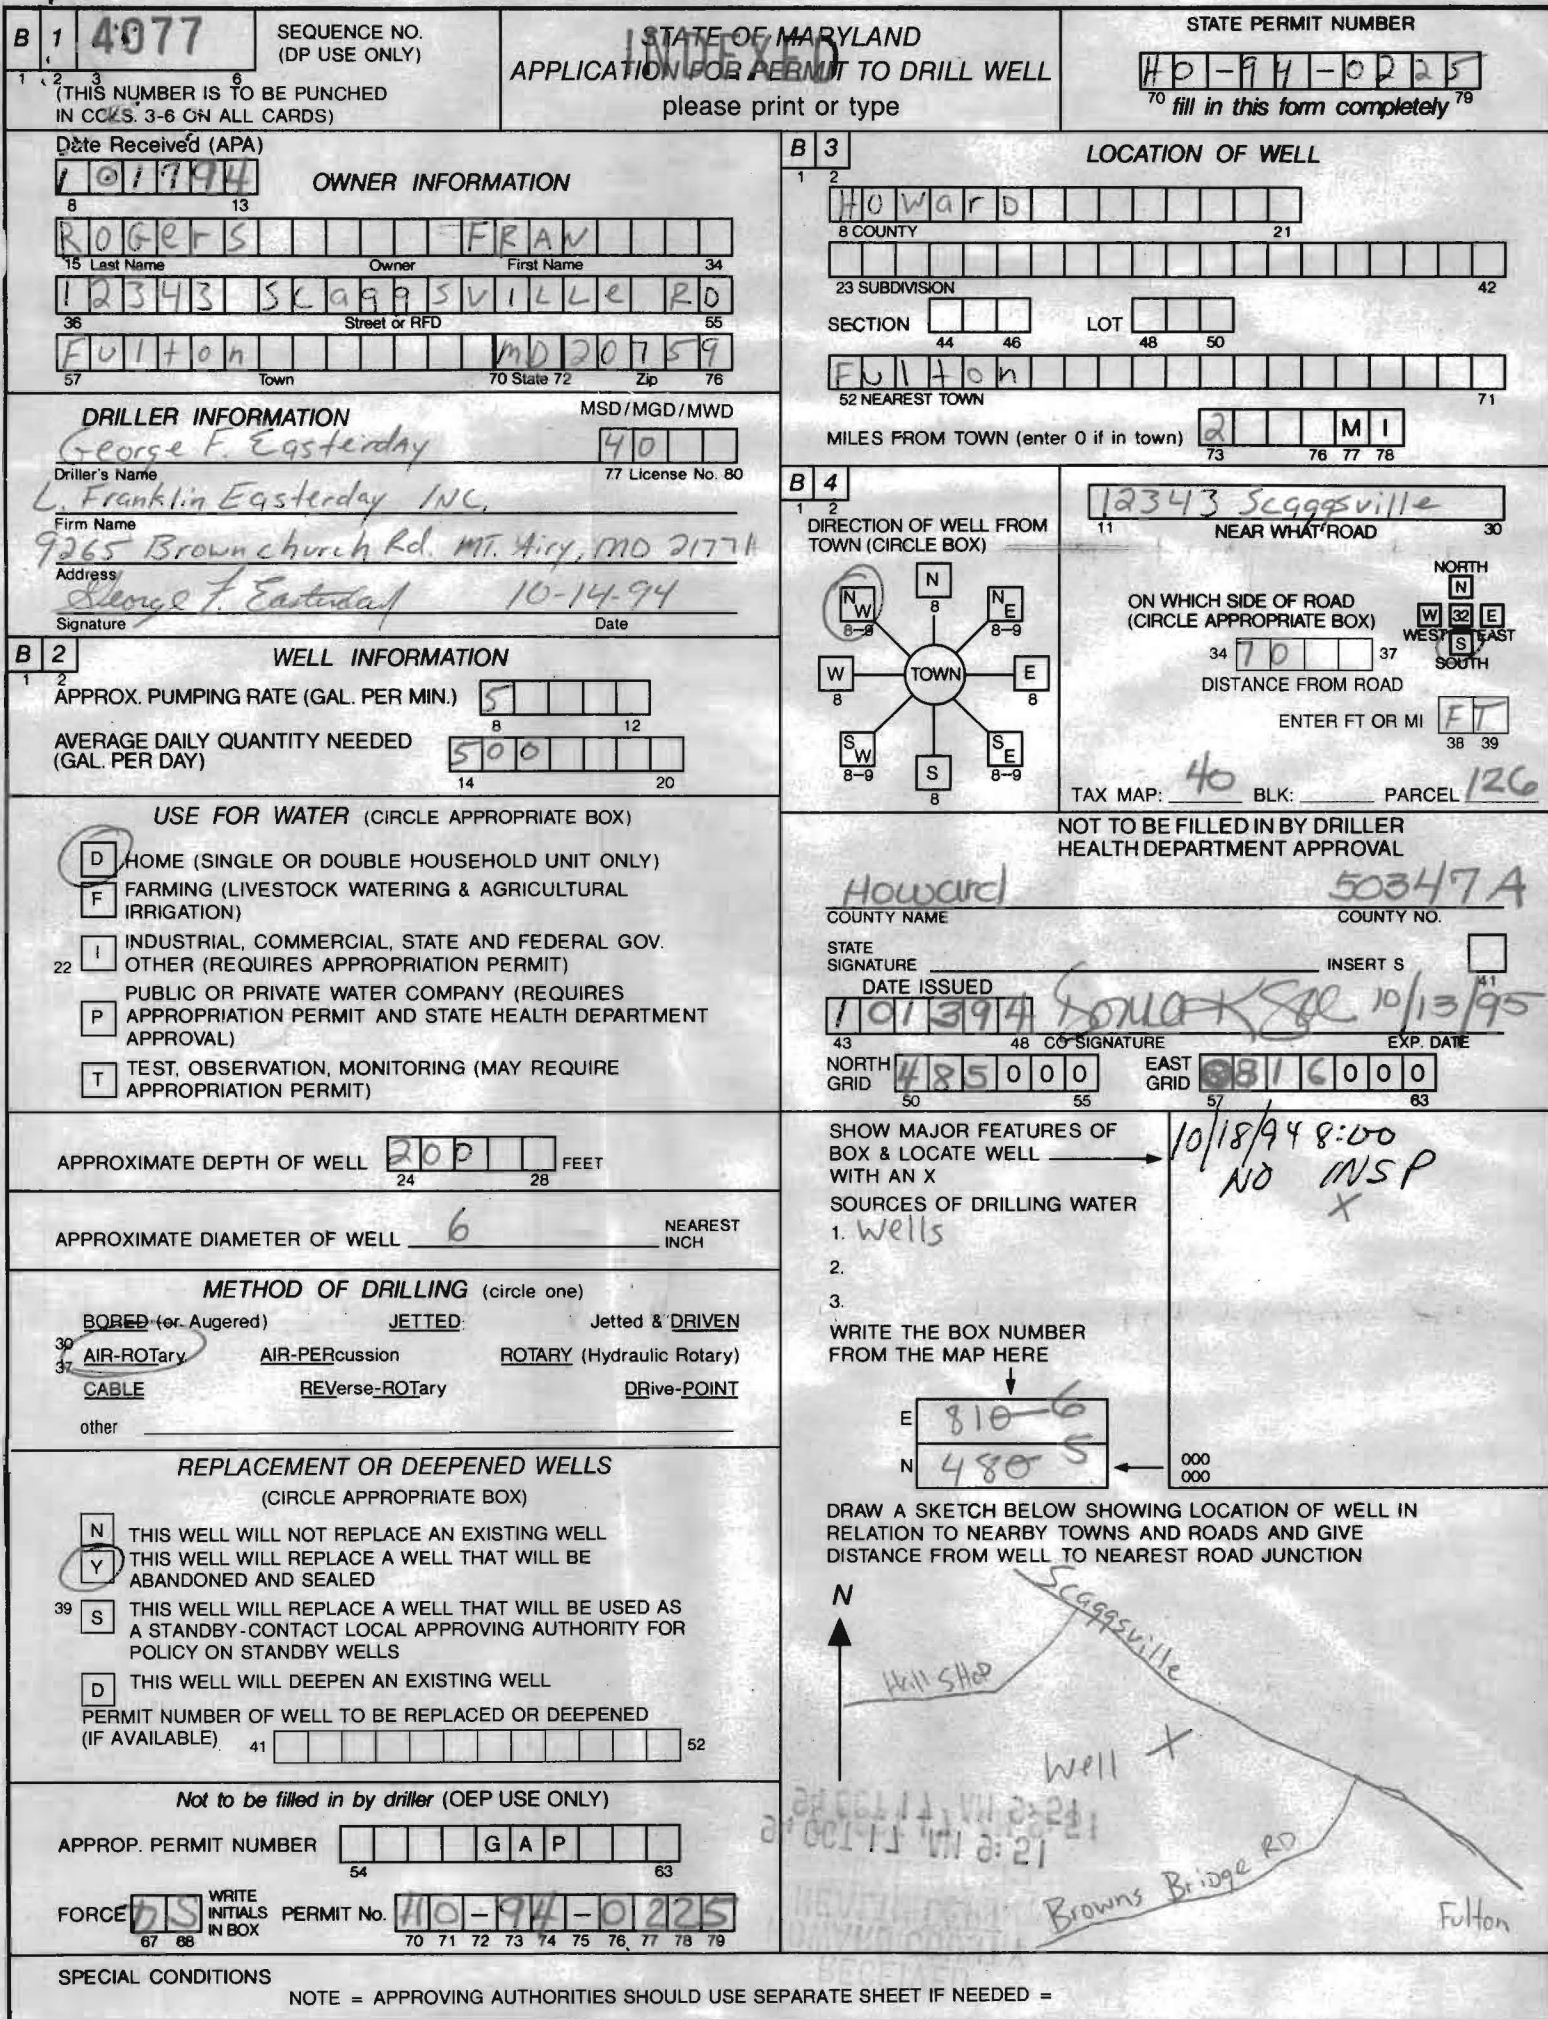 B 1 4077
SEQUENCE NO.
(DP USE ONLY)
1 2 3 6
(THIS NUMBER IS TO BE PUNCHED
IN COLS. 3-6 ON ALL CARDS)
STATE OF MARYLAND
INDEXED
APPLICATION FOR PERMIT TO DRILL WELL
please print or type
STATE PERMIT NUMBER
HO-94-0225
70 fill in this form completely 79
Date Received (APA)
101794
8 13
OWNER INFORMATION
ROGerS FRAN
15 Last Name Owner First Name 34
12343 SCaggSVILLe RD
36 Street or RFD 55
Fulton MD 20759
57 Town 70 State 72 Zip 76
DRILLER INFORMATION
MSD/MGD/MWD
George F. Easterday 40
Driller's Name 77 License No. 80
L. Franklin Easterday INC.
Firm Name
9265 Brownchurch Rd. MT. Airy, MD 21771
Address
George F. Easterday 10-14-94
Signature Date
B 2
1 2
WELL INFORMATION
APPROX. PUMPING RATE (GAL. PER MIN.) 5
8 12
AVERAGE DAILY QUANTITY NEEDED
(GAL. PER DAY) 500
14 20
USE FOR WATER (CIRCLE APPROPRIATE BOX)
D HOME (SINGLE OR DOUBLE HOUSEHOLD UNIT ONLY)
F FARMING (LIVESTOCK WATERING & AGRICULTURAL
IRRIGATION)
22 I INDUSTRIAL, COMMERCIAL, STATE AND FEDERAL GOV.
OTHER (REQUIRES APPROPRIATION PERMIT)
P PUBLIC OR PRIVATE WATER COMPANY (REQUIRES
APPROPRIATION PERMIT AND STATE HEALTH DEPARTMENT
APPROVAL)
T TEST, OBSERVATION, MONITORING (MAY REQUIRE
APPROPRIATION PERMIT)
APPROXIMATE DEPTH OF WELL 200 FEET
24 28
APPROXIMATE DIAMETER OF WELL 6 NEAREST
INCH
METHOD OF DRILLING (circle one)
BORED (or Augered) JETTED Jetted & DRIVEN
30 AIR-ROTary AIR-PERcussion ROTARY (Hydraulic Rotary)
37
CABLE REVerse-ROTary DRive-POINT
other
REPLACEMENT OR DEEPENED WELLS
(CIRCLE APPROPRIATE BOX)
N THIS WELL WILL NOT REPLACE AN EXISTING WELL
Y THIS WELL WILL REPLACE A WELL THAT WILL BE
ABANDONED AND SEALED
39 S THIS WELL WILL REPLACE A WELL THAT WILL BE USED AS
A STANDBY-CONTACT LOCAL APPROVING AUTHORITY FOR
POLICY ON STANDBY WELLS
D THIS WELL WILL DEEPEN AN EXISTING WELL
PERMIT NUMBER OF WELL TO BE REPLACED OR DEEPENED
(IF AVAILABLE) 41 52
Not to be filled in by driller (OEP USE ONLY)
APPROP. PERMIT NUMBER GAP
54 63
FORCE DS WRITE INITIALS IN BOX PERMIT No. HO-94-0225
67 68 70 71 72 73 74 75 76 77 78 79
SPECIAL CONDITIONS
NOTE = APPROVING AUTHORITIES SHOULD USE SEPARATE SHEET IF NEEDED =
B 3
1 2
LOCATION OF WELL
HOWarD
8 COUNTY 21
23 SUBDIVISION 42
SECTION LOT
44 46 48 50
Fulton
52 NEAREST TOWN 71
MILES FROM TOWN (enter 0 if in town) 2 MI
73 76 77 78
B 4
1 2
DIRECTION OF WELL FROM
TOWN (CIRCLE BOX)
12343 Scaggsville
11 NEAR WHAT ROAD 30
N
8
NW NE
8-9 8-9
W TOWN E
8 8
SW SE
8-9 8-9
S
8
ON WHICH SIDE OF ROAD
(CIRCLE APPROPRIATE BOX)
NORTH
N
W 32 E
WEST EAST
S
SOUTH
34 70 37
DISTANCE FROM ROAD
ENTER FT OR MI FT
38 39
TAX MAP: 40 BLK: PARCEL 126
NOT TO BE FILLED IN BY DRILLER
HEALTH DEPARTMENT APPROVAL
Howard 50347A
COUNTY NAME COUNTY NO.
STATE
SIGNATURE INSERT S
41
DATE ISSUED
101394 10/13/95
43 48 CO SIGNATURE EXP. DATE
NORTH
GRID 485000
50 55
EAST
GRID 816000
57 63
SHOW MAJOR FEATURES OF
BOX & LOCATE WELL
WITH AN X
10/18/94 8:00
NO INSP
X
SOURCES OF DRILLING WATER
1. Wells
2.
3.
WRITE THE BOX NUMBER
FROM THE MAP HERE
E 810 6
N 480 5
000
000
DRAW A SKETCH BELOW SHOWING LOCATION OF WELL IN
RELATION TO NEARBY TOWNS AND ROADS AND GIVE
DISTANCE FROM WELL TO NEAREST ROAD JUNCTION
N
Scaggsville
Hall SHOP
Well X
Browns Bridge RD
Fulton